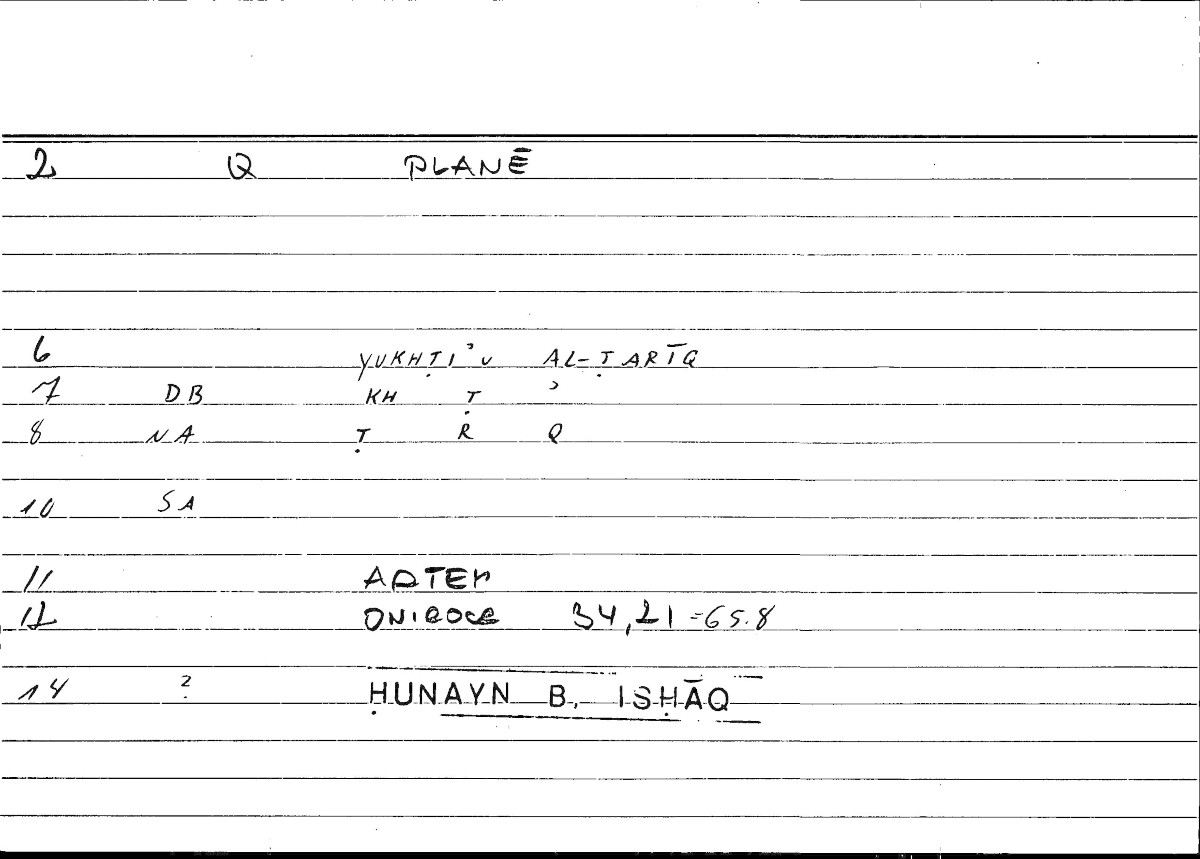 2 Q PLANĒ
6 YUKHṬIʾU AL-ṬARĪQ
7 DB KH Ṭ ʾ
8 NA Ṭ R Q
10 SA
11 ARTEM
12 ONIROCR 34,21 =65.8
14 ? ḤUNAYN B. ISḤĀQ